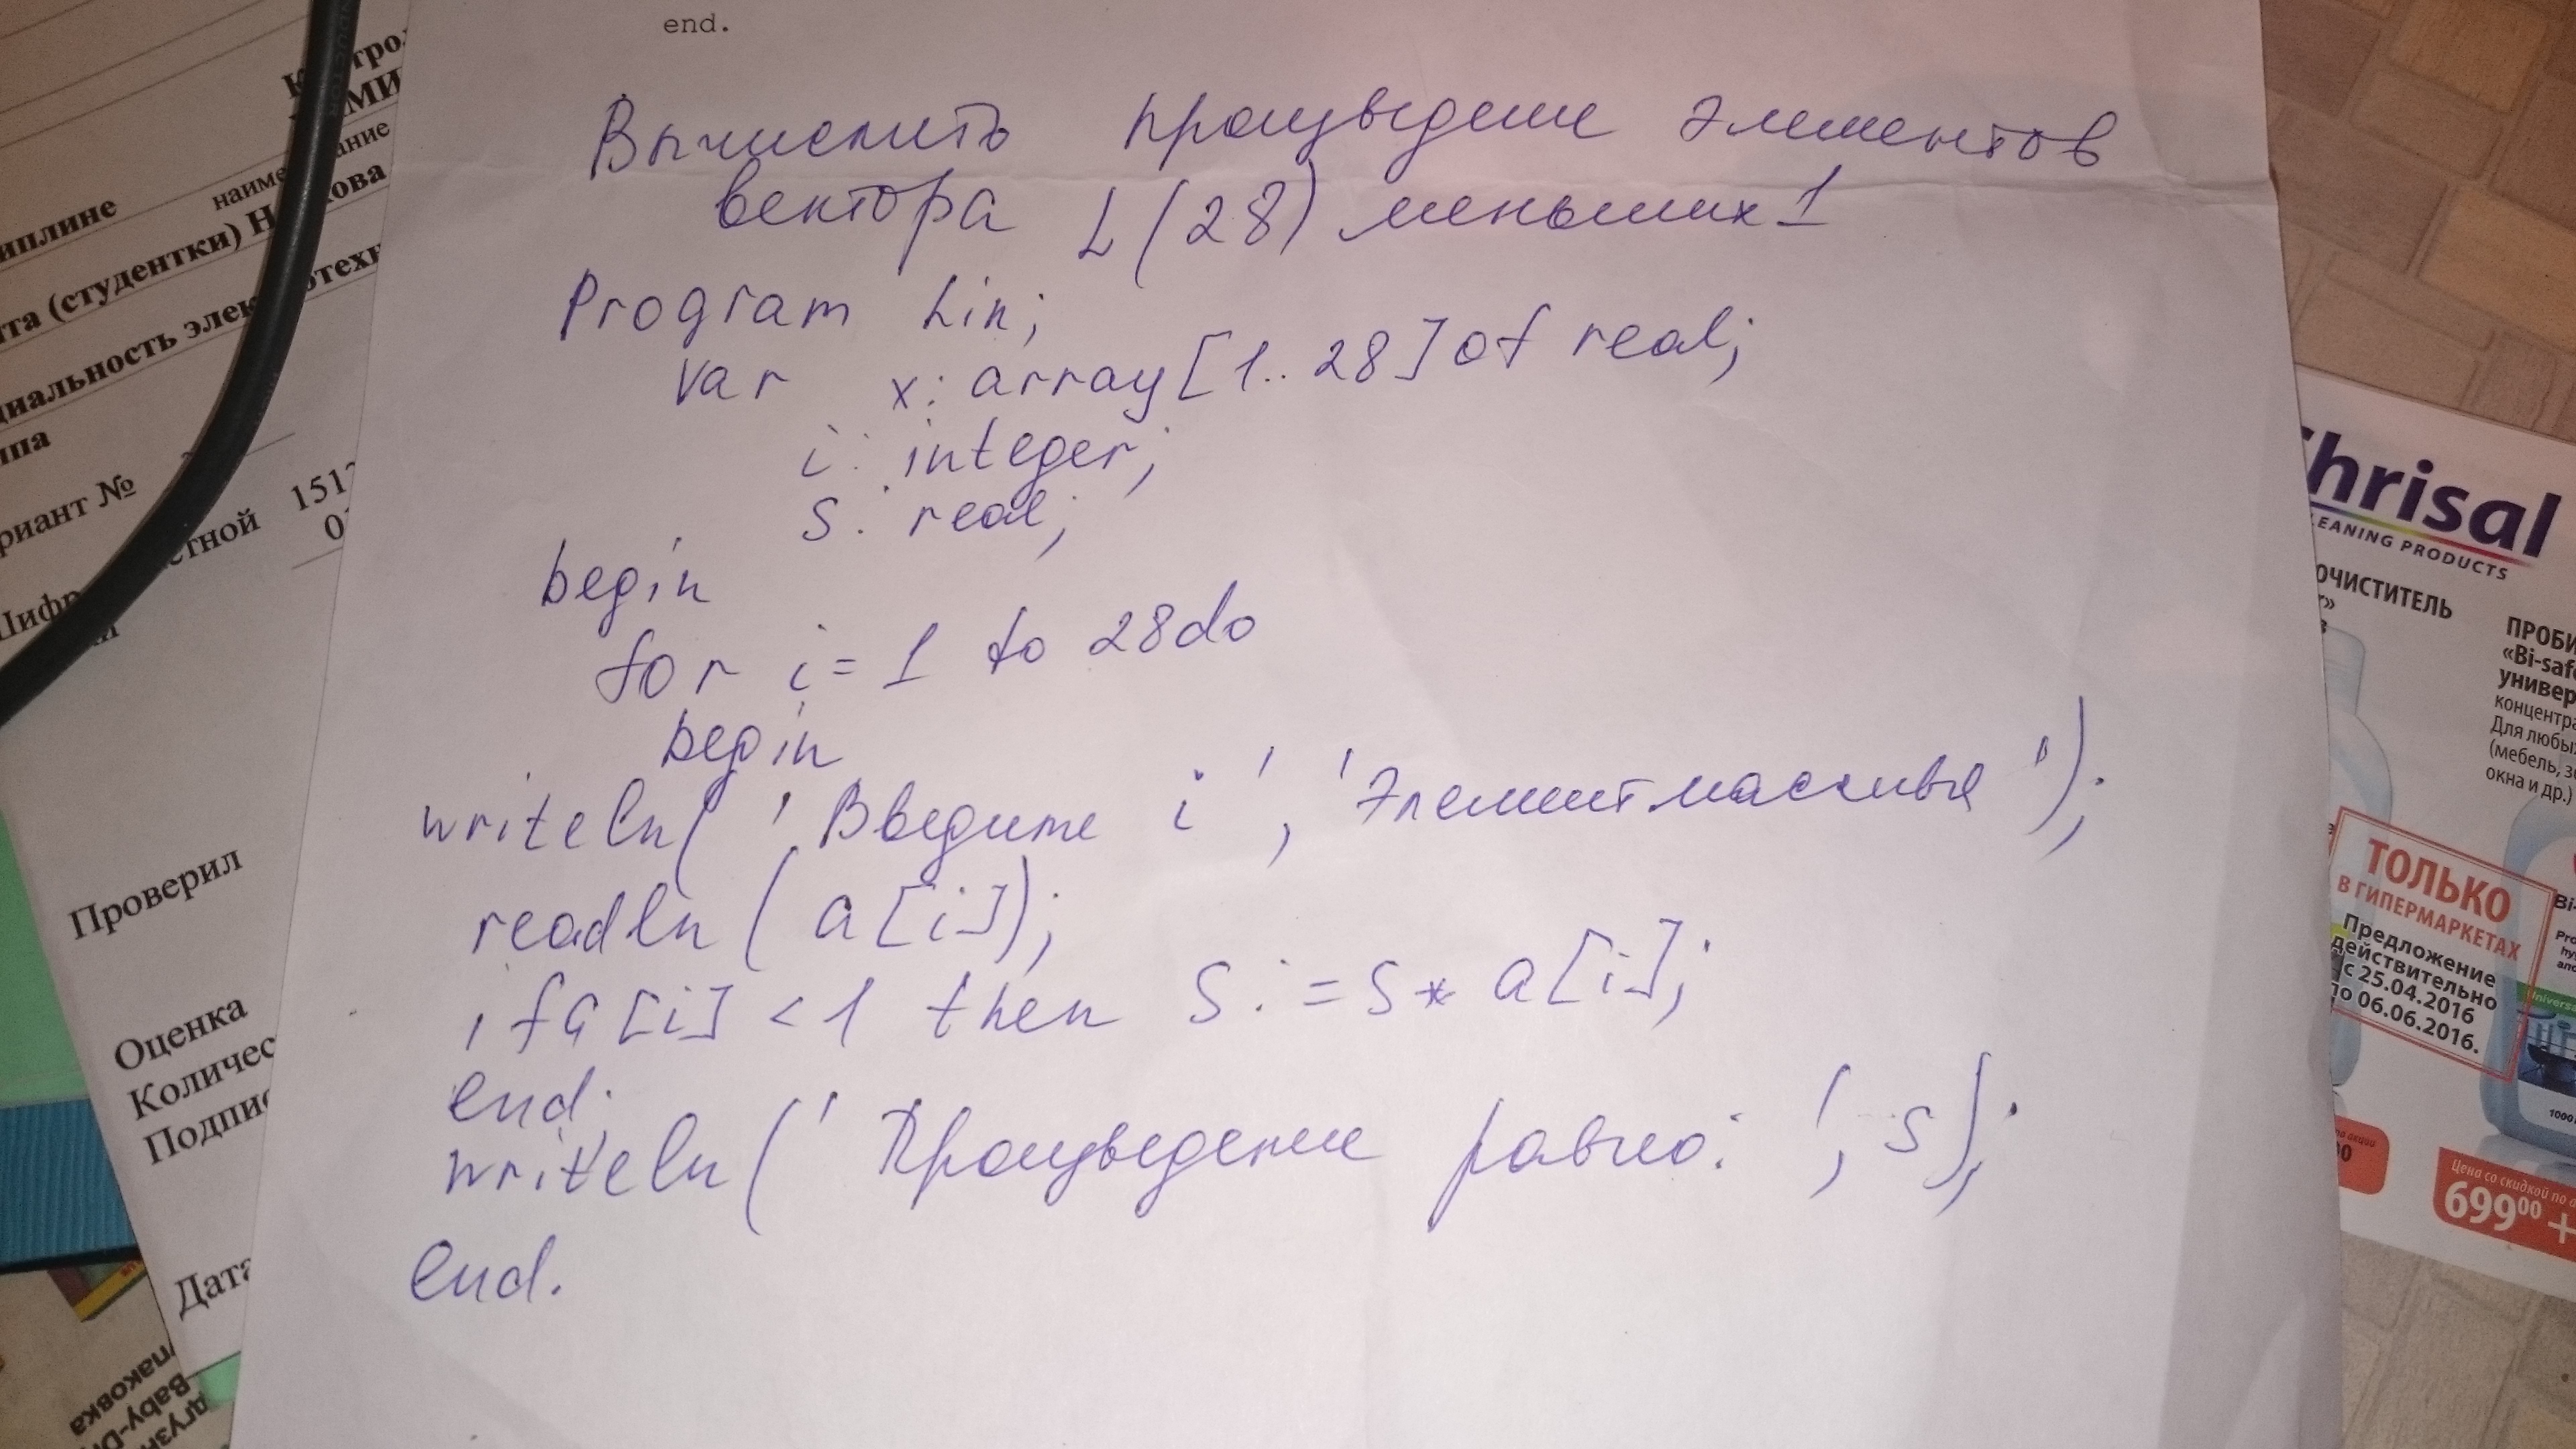 end.
Вычислить произведение элементов
вектора L(28) меньших 1
Program Lin;
var x: array[1..28] of real;
i: integer;
S: real;
begin
for i=1 to 28 do
begin
writeln('Введите i', 'Элемент массива');
readln(a[i]);
if a[i]<1 then S:=S*a[i];
end;
writeln('Произведение равно: ', S);
end.
иплине
наиме
ание
та (студентки) Н
кова
циальность элек
отехн
риант №
151
Шифр
тной
Проверил
Оценка
Количес
Подпис
Дата
паковка
Baby-D
hrisal
LEANING PRODUCTS
ОЧИСТИТЕЛЬ
ПРОБИ
«Bi-saf
универ
концентра
Для любы
(мебель, з
окна и др.)
ТОЛЬКО
В ГИПЕРМАРКЕТАХ
Предложение
действительно
с 25.04.2016
по 06.06.2016.
Universa
1000
Цена со скидкой по а
699 00 +